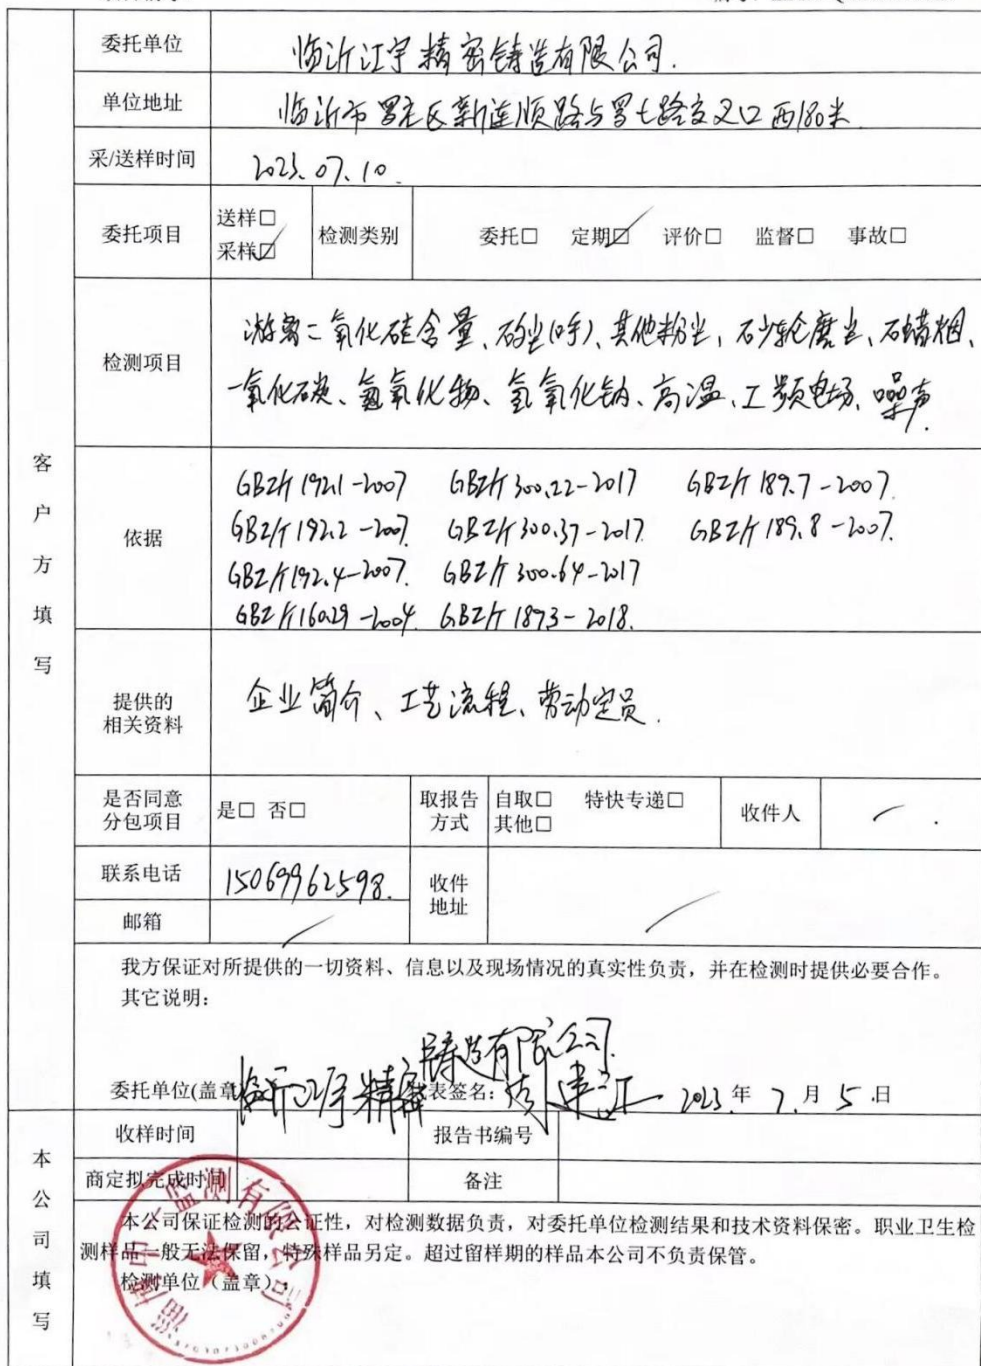 委托单位 临沂江宇精密铸造有限公司.
单位地址 临沂市罗庄区新连顺路与罗七路交叉口西180米
采/送样时间 2023.07.10.
委托项目 送样□ 采样☑ 检测类别 委托□ 定期☑ 评价□ 监督□ 事故□
检测项目
游离二氧化硅含量、矽尘(呼)、其他粉尘、砂轮磨尘、石蜡烟、
一氧化碳、氮氧化物、氢氧化钠、高温、工频电场、噪声.
客户方填写
依据
GBZ/T 192.1-2007 GBZ/T 300.22-2017 GBZ/T 189.7-2007.
GBZ/T 192.2-2007. GBZ/T 300.37-2017. GBZ/T 189.8-2007.
GBZ/T 192.4-2007. GBZ/T 300.64-2017
GBZ/T 160.29-2004. GBZ/T 189.3-2018.
提供的
相关资料
企业简介、工艺流程、劳动定员.
是否同意
分包项目
是□ 否□
取报告
方式
自取□ 特快专递□
其他□
收件人
联系电话 15069962598.
收件
地址
邮箱
我方保证对所提供的一切资料、信息以及现场情况的真实性负责，并在检测时提供必要合作。
其它说明：
铸造有限公司.
委托单位(盖章 临沂江宇精密 代表签名： 2023.年 7.月 5.日
本公司填写
收样时间 报告书编号
商定拟完成时间 备注
本公司保证检测的公证性，对检测数据负责，对委托单位检测结果和技术资料保密。职业卫生检
测样品一般无法保留，特殊样品另定。超过留样期的样品本公司不负责保管。
检测单位（盖章）：
监测有限公司